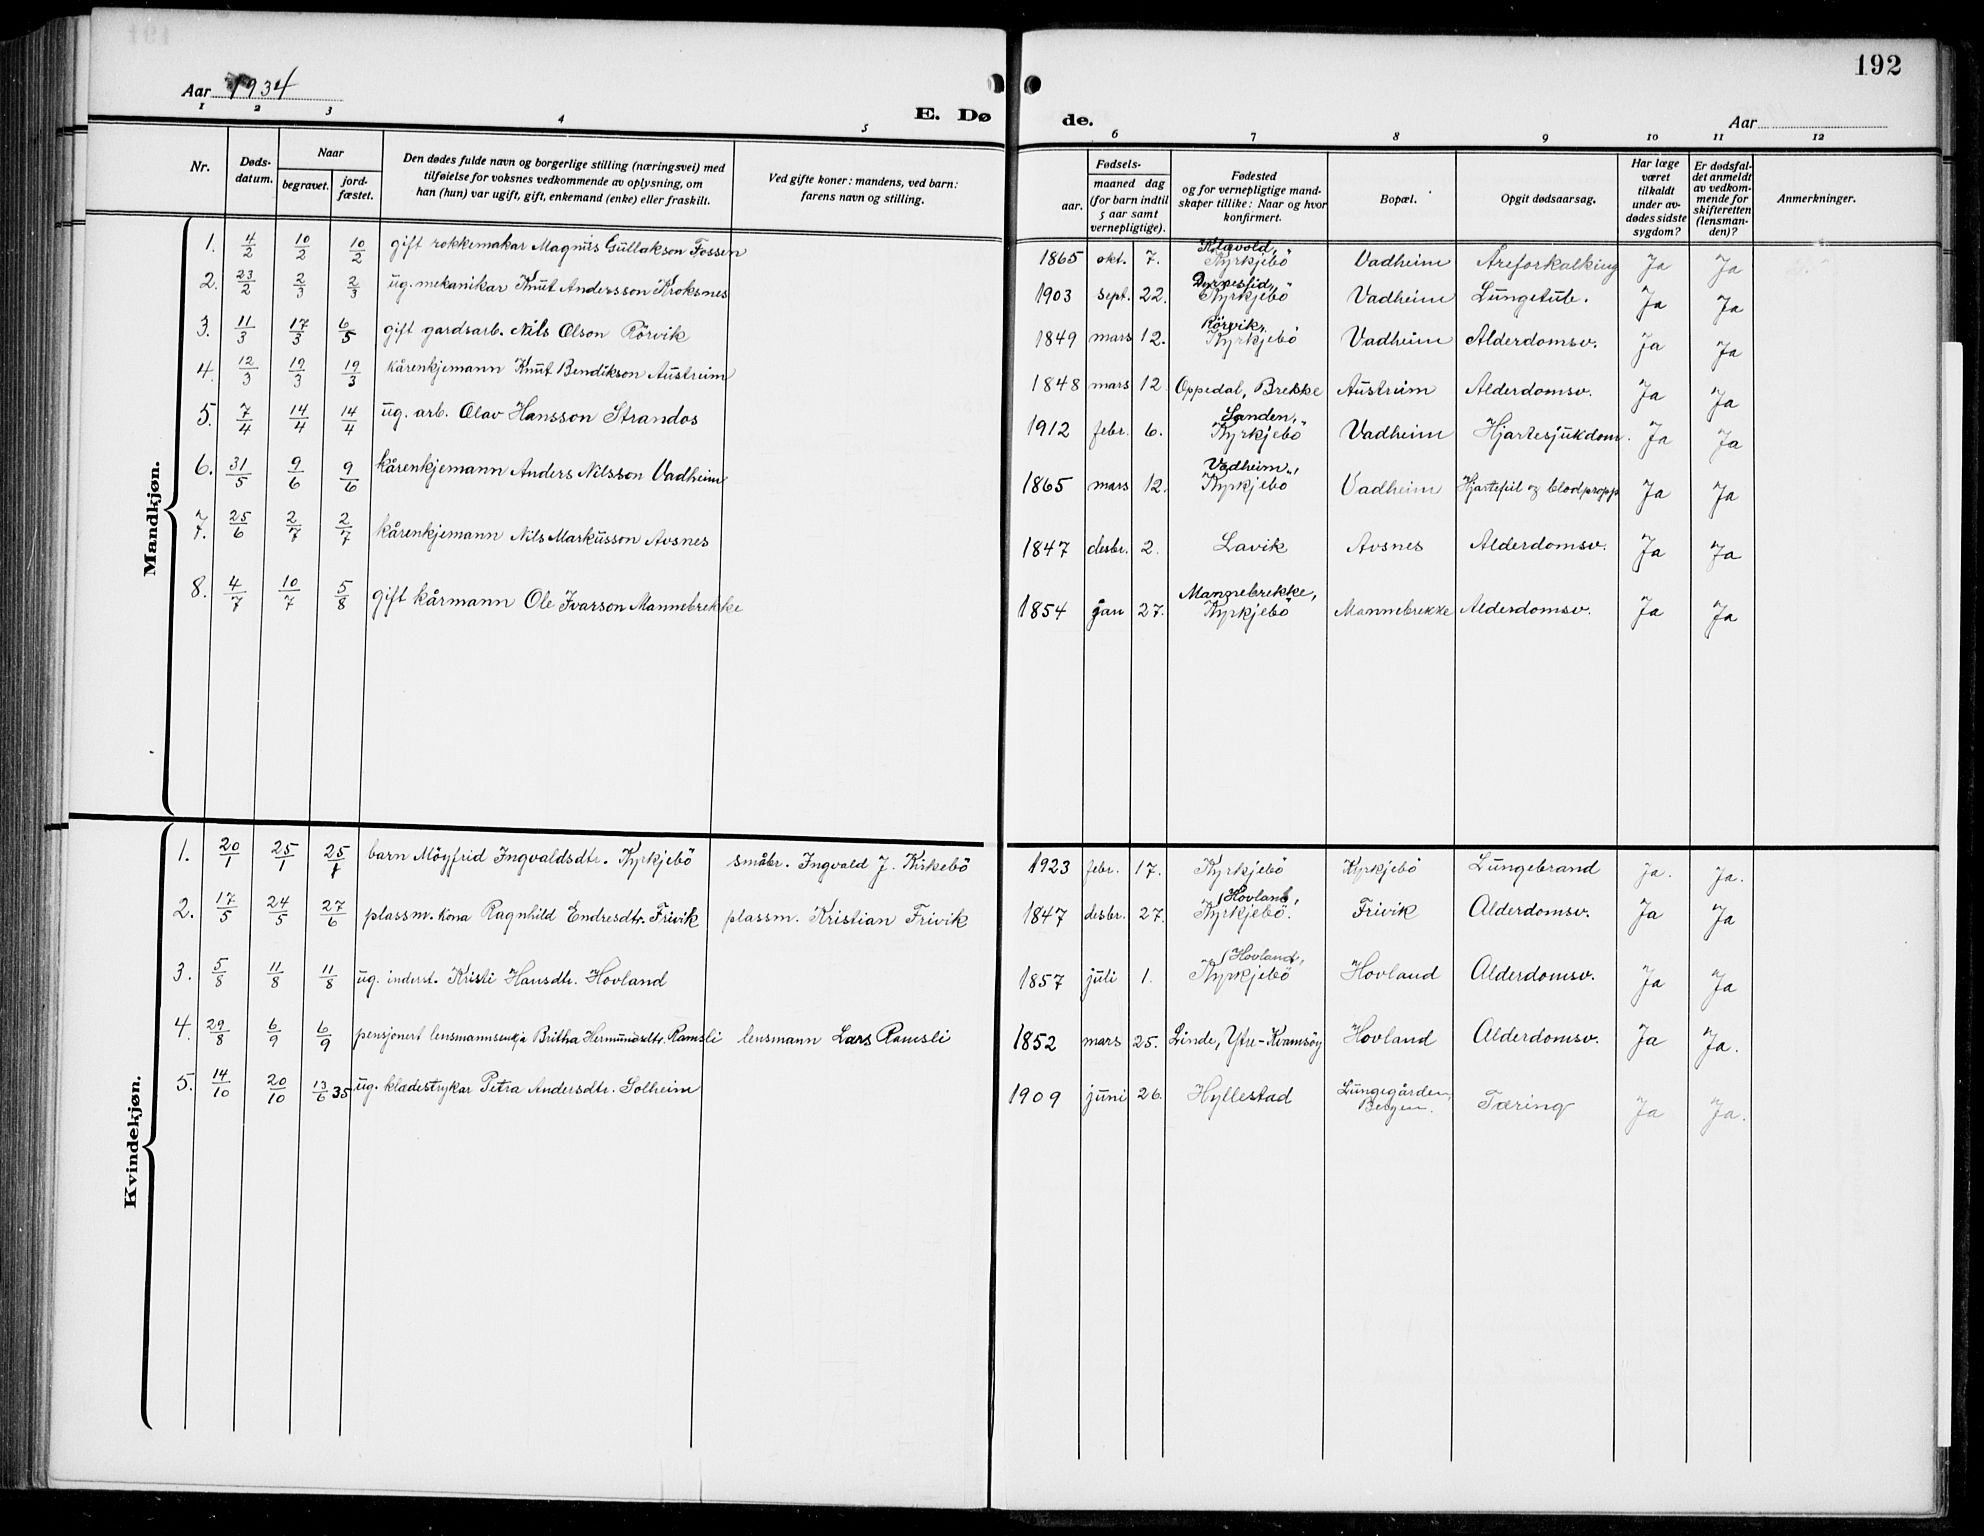 192
Aar 1934
E. Dø de.
Aar
1 2 3 4 5 6 7 8 9 10 11 12
Nr.
Døds-
datum.
Naar
begravet.
jord-
fæstet.
Den dødes fulde navn og borgerlige stilling (næringsvei) med
tilføielse for voksnes vedkommende av oplysning, om
han (hun) var ugift, gift, enkemand (enke) eller fraskilt.
Ved gifte koner: mandens, ved barn:
farens navn og stilling.
Fødsels-
aar.
maaned dag
(for barn indtil
5 aar samt
vernepligtige).
Fødested
og for vernepligtige mand-
skaper tillike: Naar og hvor
konfirmert.
Bopæl.
Opgit dødsaarsag.
Har læge
været
tilkaldt
under av-
dødes sidste
sygdom?
Er dødsfal-
det anmeldt
av vedkom-
mende for
skifteretten
(lensman-
den)?
Anmerkninger.
Mandkjøn.
1. 4/2 10/2 10/2 gift rokkemakar Magnus Gullakson Fossen 1865 okt. 7. Kyrkjebö Vadheim Åreforkalking Ja Ja
2. 23/2 2/3 2/3 ug. mekanikar Knut Andersson Kroksnes 1903 sept. 22. Kyrkjebö Vadheim Lungetub. Ja Ja
3. 11/3 17/3 6/5 gift gardsarb. Nils Olson Rörvik 1849 mars 12. Rörvik, Kyrkjebö Vadheim Alderdomsv. ja Ja
4. 12/3 19/3 19/3 kårenkjemann Knut Bendikson Austreim 1848 mars 12 Oppedal, Brekke Austreim Alderdomsv. Ja Ja
5. 7/4 14/4 14/4 ug. arb. Olav Hansson Strandos 1912 febr. 6. Sanden, Kyrkjebö Vadheim Hjartesjukdom. Ja Ja
6. 31/5 9/6 9/6 kårenkjemann Anders Nilsson Vadheim 1865 mars 12. Vadheim, Kyrkjebö Vadheim Hjartefeil og blodpropp Ja Ja
7. 25/6 2/7 2/7 kårenkjemann Nils Markusson Avsnes 1847 desbr. 2. Lavik Avsnes Alderdomsv. Ja Ja
8. 4/7 10/7 5/8 gift kårmann Ole Ivarson Mannebrekke 1854 jan 27. Mannebrekke, Kyrkjebö Mannebrekke Alderdomsv. Ja Ja
Kvindekjøn.
1. 20/1 25/1 25/1 barn Möyfrid Ingvaldsdtr. Kyrkjebö småbr. Ingvald J. Kirkebö 1923 febr. 17. Kyrkjebö Kyrkjebö Lungebrand Ja. Ja.
2. 17/5 24/5 27/6 plassm. kona Ragnhild Endresdtr. Frivik plassm. Kristian Frivik 1847 desbr. 27. Hovland, Kyrkjebö. Frivik Alderdomsv. Ja Ja
3. 5/8 11/8 11/8 ug. inderst. Kristi Hansdtr. Hovland 1857 juli 1. Hovland, Kyrkjebö Hovland Alderdomsv. Ja Ja
4. 29/8 6/9 6/9 pensjonert lensmannsenkja Britha Hermundsdtr. Ramsli lensmann Lars Ramsli 1852 mars 25. Linde, Ytre-Kvamsöy Hovland Alderdomsv. Ja Ja.
5. 14/10 20/10 13/6 35 ug. klædestrykar Petra Andersdtr. Solheim 1909 juni 26. Hyllestad Lungegården, Bergen. Tæring Ja Ja.